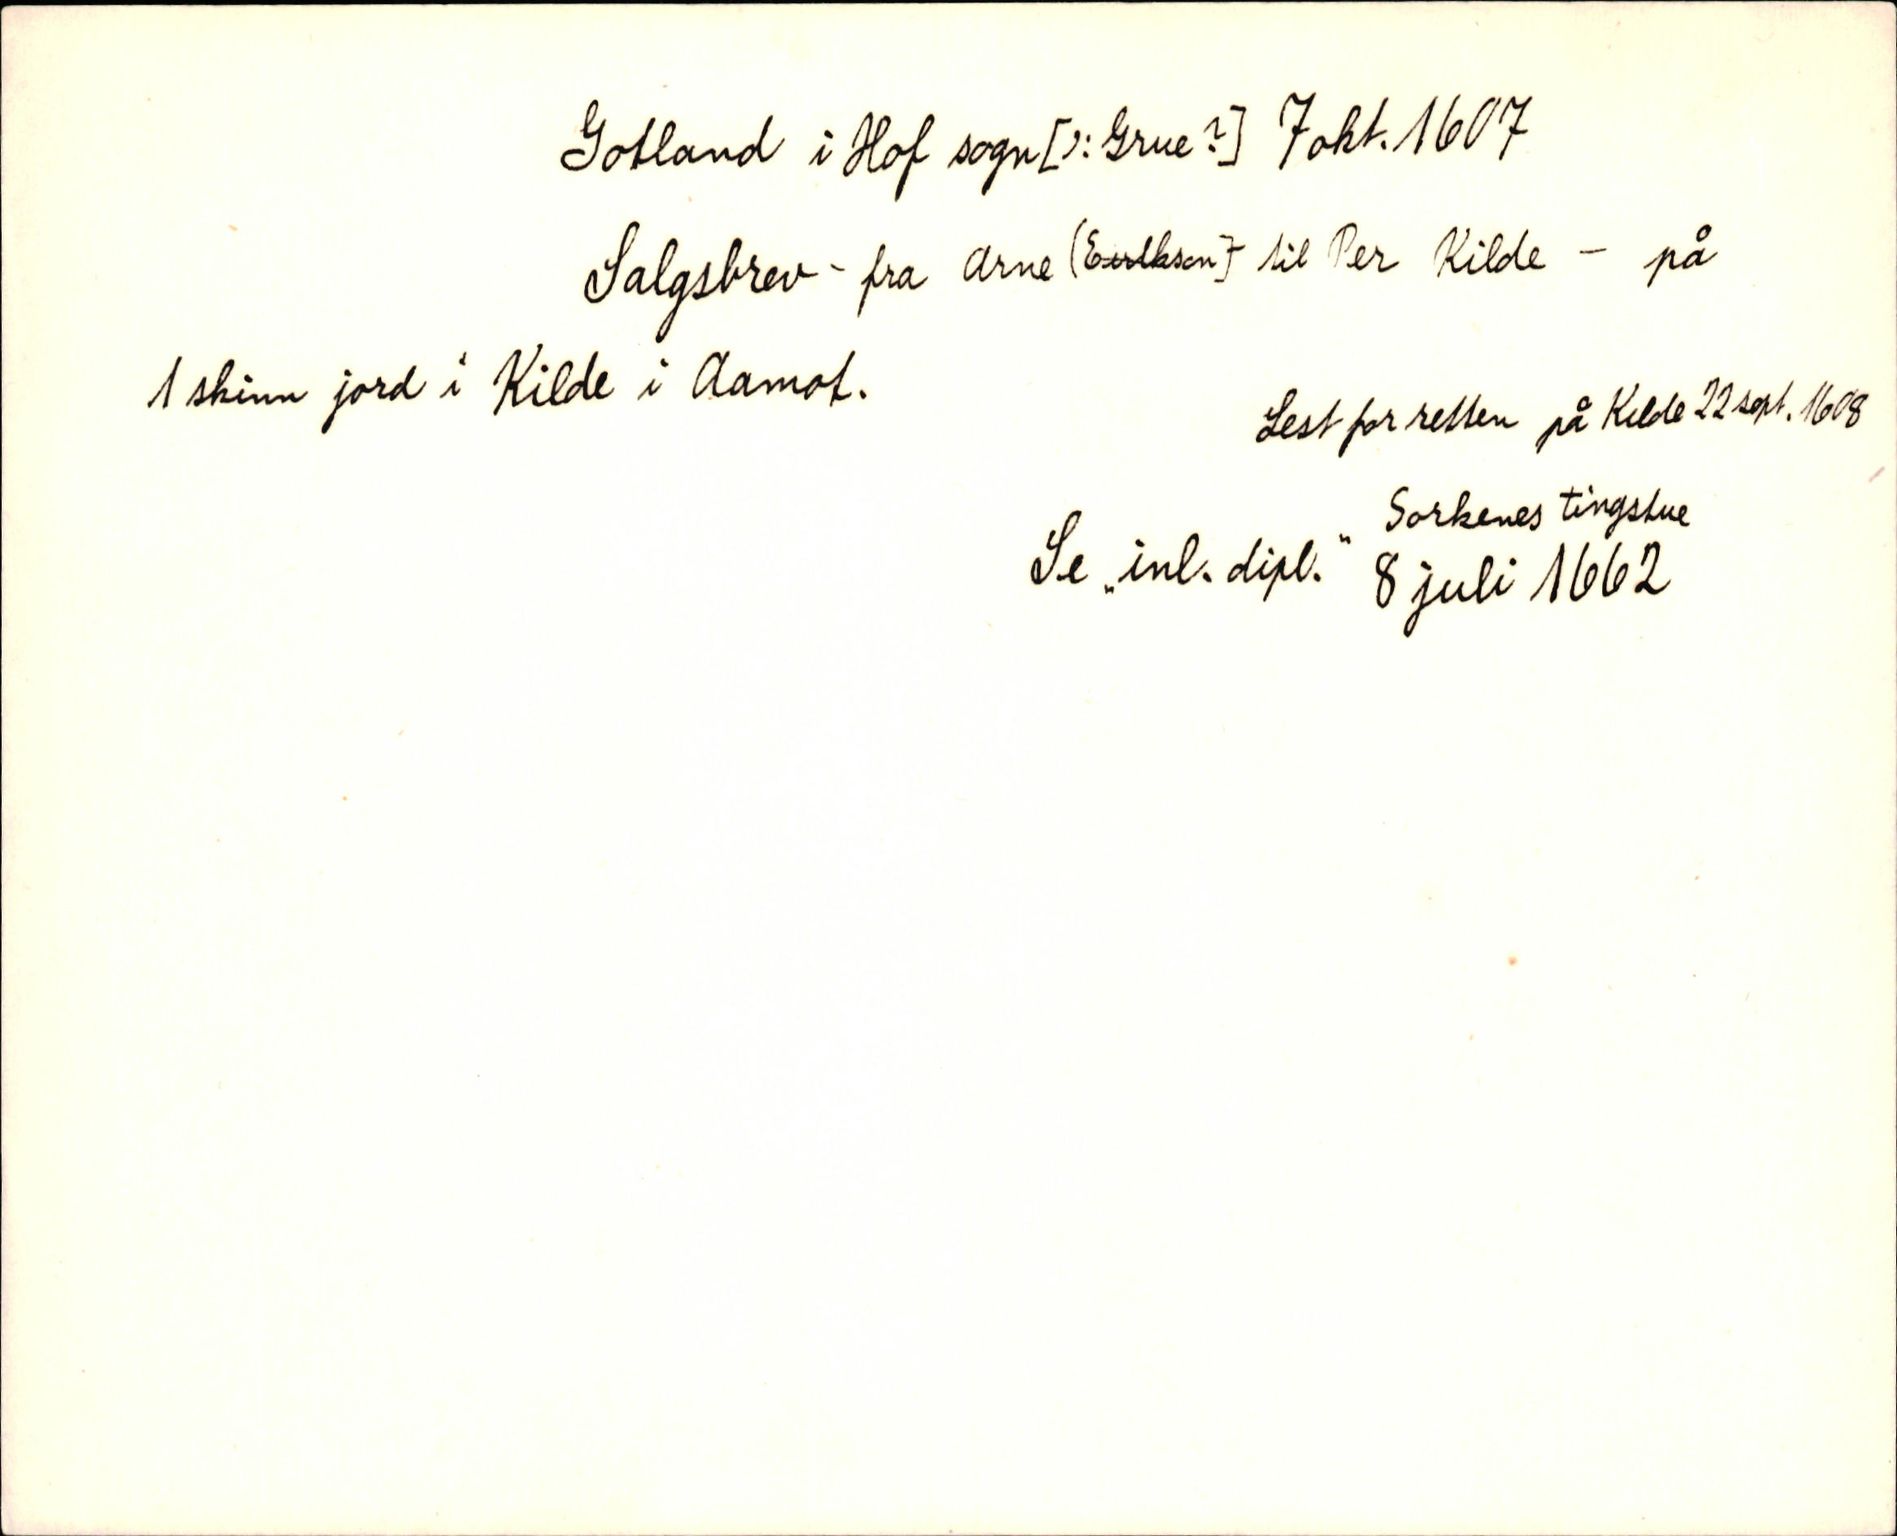 Gotland i Hof sogn [ɔ: Grue?] 7 okt. 1607
Salgsbrev - fra Arne (Eirikson) til Per Kilde - på
1 skinn jord i Kilde i Aamot.
Lest for retten på Kilde 22 sept. 1608
Sorkenes tingstue
Se „inl. dipl." 8 juli 1662